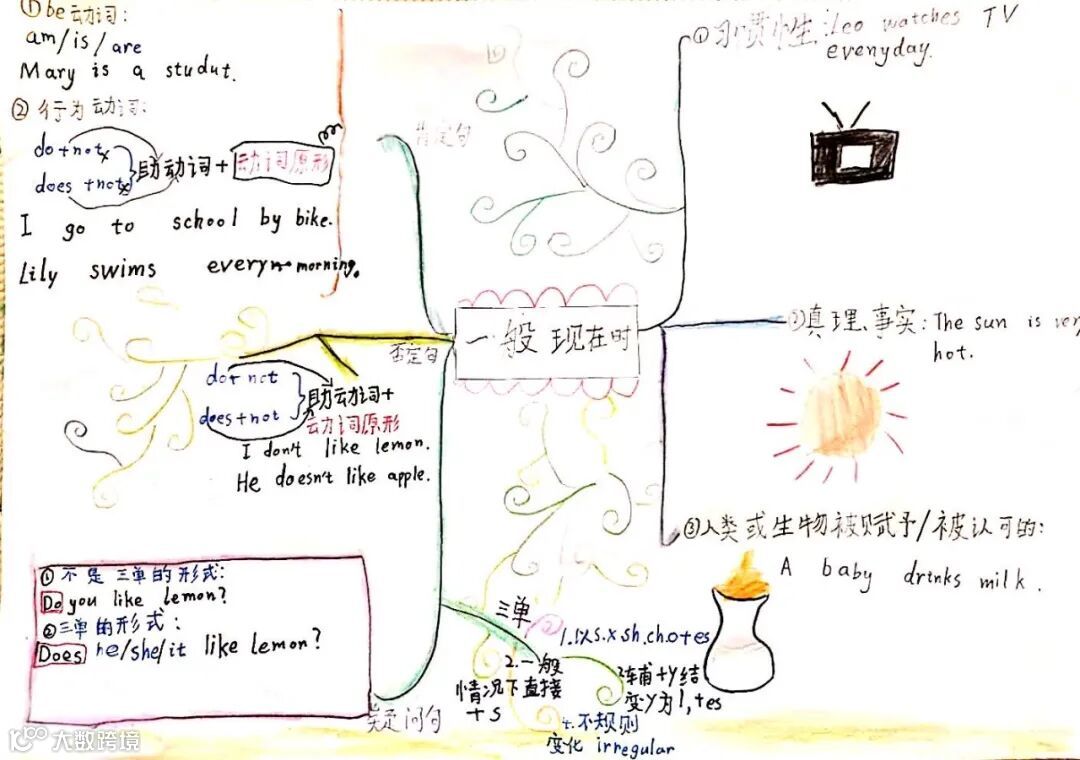 ① be动词:
am/is/are
Mary is a studut.
② 行为动词:
do+not
does +not
助动词+动词原形
I go to school by bike.
Lily swims every morning.
肯定句
①习惯性:Leo watches TV
everyday.
一般现在时
②真理、事实:The sun is very
hot.
③人类或生物被赋予/被认可的:
A baby drinks milk.
否定句
do+ not
does+not
助动词+
动词原形
I don't like lemon.
He doesn't like apple.
① 不是三单的形式:
Do you like lemon?
②三单的形式:
Does he/she/it like lemon?
疑问句
三单
1.以s.x sh.ch.o+es
2.一般
情况下直接
+s
辅+y结
变y为i,+es
4.不规则
变化 irregular
大数跨境